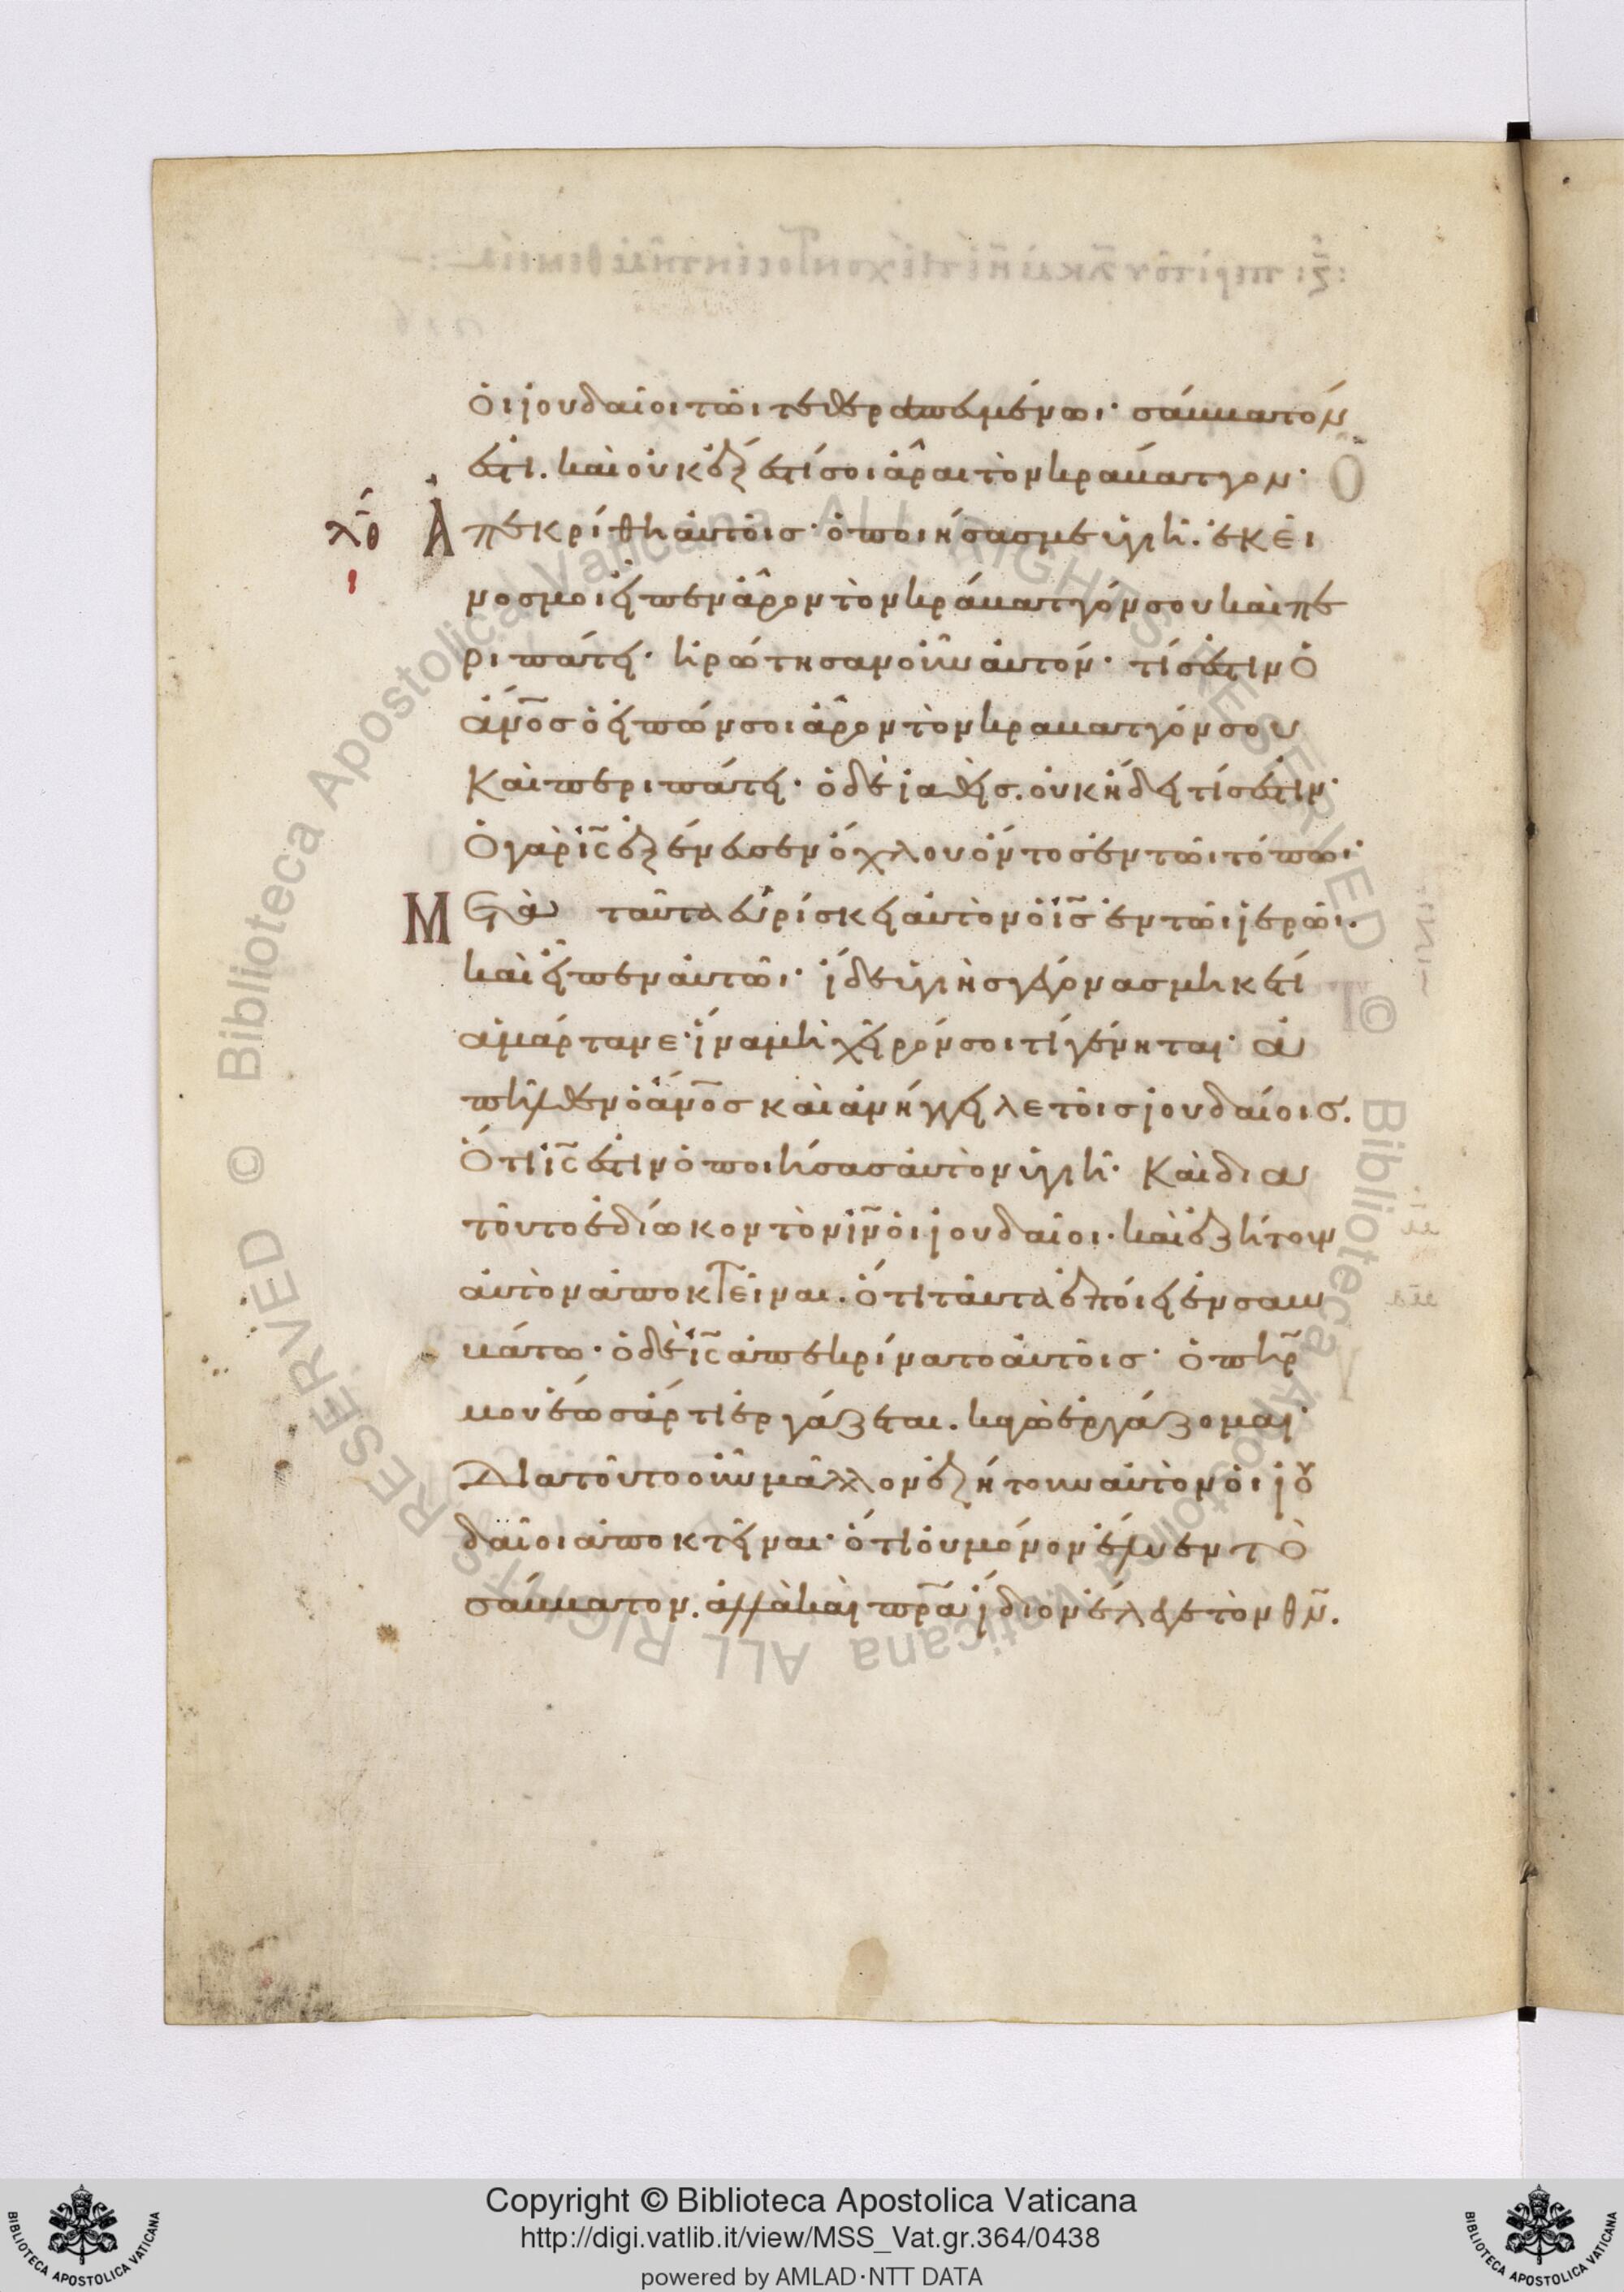 ὁι ἰουδαῖοι τῶι τεθεραπευμένωι· σάββατόν
ἐστι. καὶ οὐκ ἔξεστί σοι ἆραι τὸν κράβαττον·
Ἀπεκρίθη αὐτοῖσ· ὁ ποιήσασ με ὑγιῆ. ἐκεῖ
νοσ μοι εἶπεν ἆρον τὸν κράβαττόν σου καὶ πε
ριπάτει· ἠρώτησαν οὖν αὐτόν· τίσ ἐστιν ὁ
ἄνο̅σ ὁ εἰπών σοι ἆρον τὸν κραβαττόν σου
καὶ περιπάτει· ὁ δὲ ἰαθεὶσ. οὐκ ἤδει τίσ ἐστιν·
Ὁ γὰρ ις̅ ἐξένευσεν ὄχλου ὄντοσ ἐν τῶι τόπωι·
Μετὰ ταῦτα εὑρίσκει αὐτὸν ὁ ισ̅ ἐν τῶι ἱερῶι.
καὶ εἶπεν αὐτῶι· ἴδε ὑγιὴσ γέγονασ μηκέτι
ἁμάρτανε· ἵνα μὴ χεῖρόν σοι τί γένηται· ἀ
πῆλθεν ὁ ἄνο̅σ καὶ ἀνήγγειλε τοῖσ ἰουδαίοισ.
Ὅτι ις̅ ἐστιν ὁ ποιήσασ αὐτὸν ὑγιῆ· Καὶ δια
τοῦτο ἐδίωκον τὸν ιν̅ ὁι ἰουδαῖοι. καὶ ἐζήτουν
αὐτὸν ἀποκτεῖναι. ὅτι ταῦτα ἐποίει ἐν σαβ
βάτω· ὁ δὲ ις̅ ἀπεκρίνατο αὐτοῖσ· ὁ πηρ̅
μου ἕωσ ἄρτι ἐργάζεται. κἀγὼ ἐργάζομαι·
Διατοῦτο οὖν μᾶλλον ἐζήτουν αὐτὸν ὁι ἰου
δαῖοι ἀποκτεῖναι· ὅτι οὐ μόνον ἔλυεν τὸ
σάββατον. ἀλλὰ καὶ πρ̅α ἴδιον ἔλεγε τὸν θν̅.
Copyright © Biblioteca Apostolica Vaticana
http://digi.vatlib.it/view/MSS_Vat.gr.364/0438
powered by AMLAD·NTT DATA
BIBLIOTECA APOSTOLICA VATICANA
BIBLIOTECA APOSTOLICA VATICANA